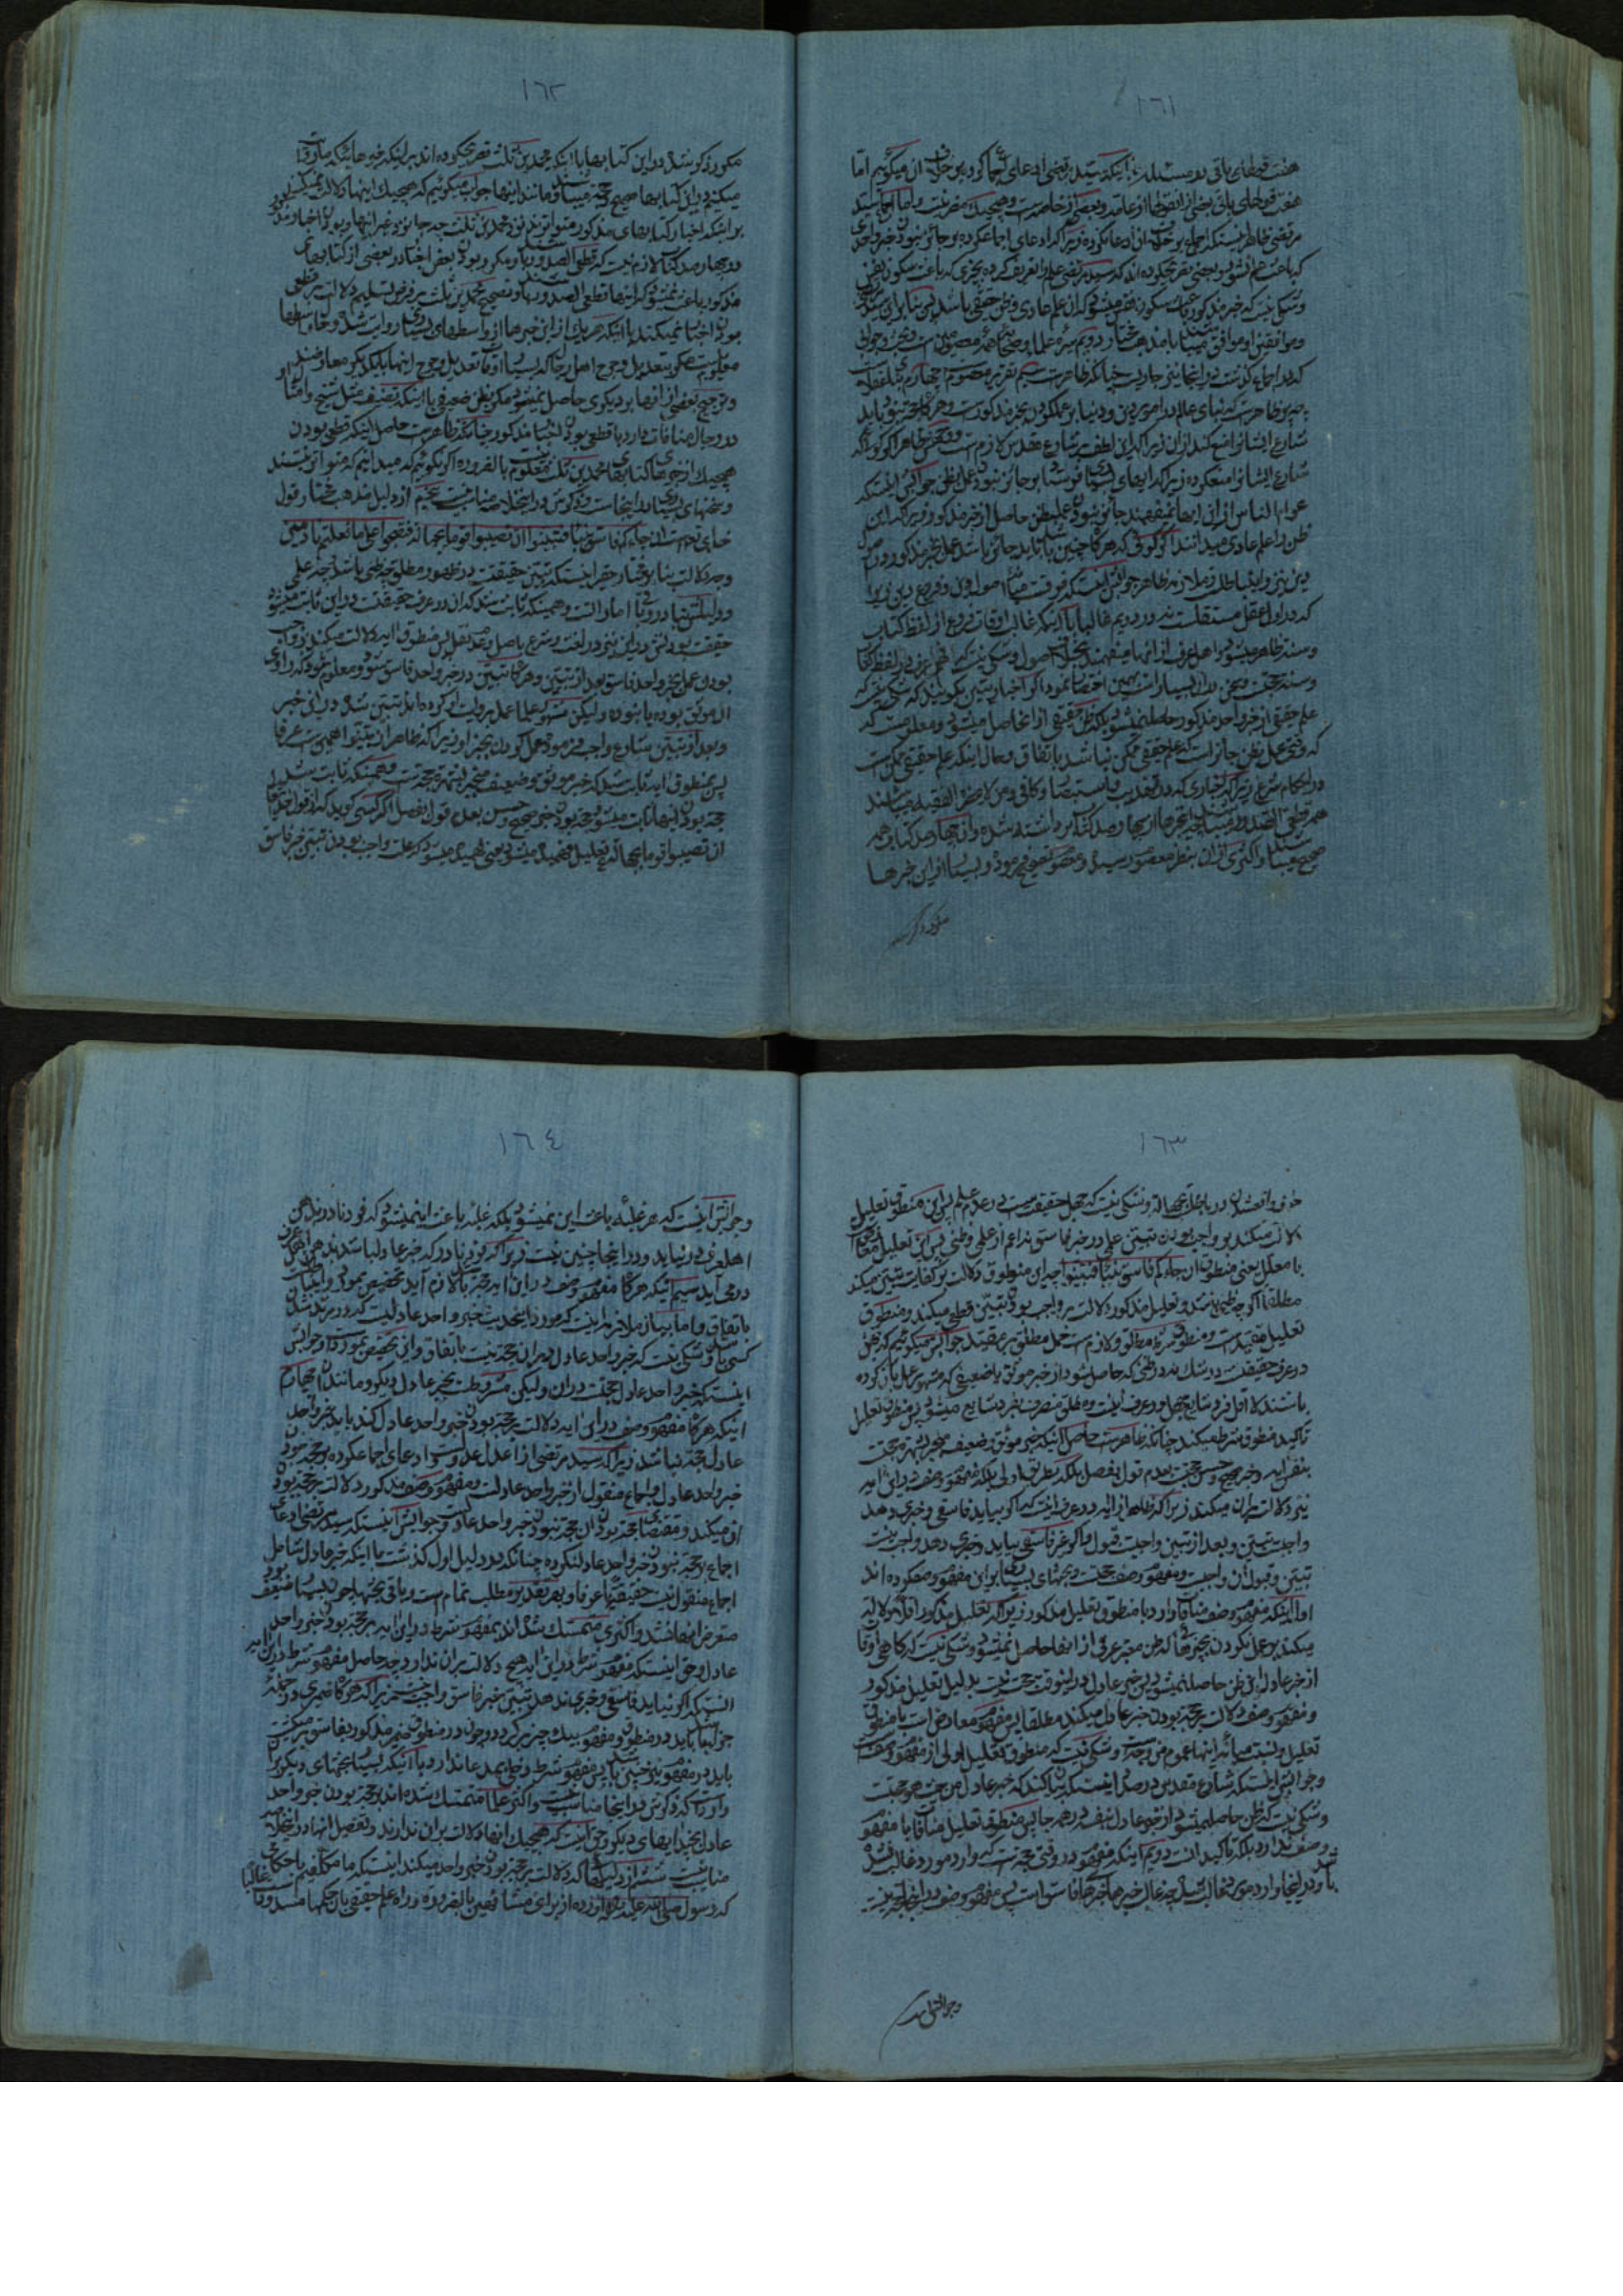 ١٦١
هفت قولهای باقی در مسئله
هفت قولهای باقی بعضی از آنقولها از عامه و بعضی از خاصه است و هیچیک مضر نیست و اما اجماع سید
مرتضی ظاهر اینستکه اجماع بر خلاف آن ادعا نکرده زیرا که ادعای اجماع کرده بر جائز نبودن خبر واحدی
که باعث علم نشود و بعضی تصریح کرده اند که سید مرتضی علم را تعریف کرده بچیزی که باعث سکون نفس
و شکی نیست که خبر مذکور باعث سکون نفس میشود
کردن اجماع گذشت در اینجا نیز جاریست چنانکه ظاهر است سیم تقریر معصوم چهارم
شارع ایشانرا منع کند از آن زیرا که این لطف بر شارع مقدس لازم است
شارع ایشانرا منع نکرده زیرا که آیهای
عوام الناس از این آیها نمیفهمند جائز نبودن عمل بظن حاصل از خبر مذکور زیرا که این
ظن را علم عادی میدانند اگر گوئی که هرگاه چنین باشد باید جائز باشد عمل بخبر مذکور در اصول
دین نیز و این باطلست ملازمه ظاهر جوابش اینستکه فرقست میان اصول دین و فروع دین زیرا
که در اول عقل مستقلست نه در دویم غالبا با اینکه غالب اوقات فروع از لفظ کتاب
و سنت ظاهر میشود و اهل عرف از آنها میفهمند بخلاف اصول
علم حقیقی از خبر واحد مذکور حاصل نمیشود بلکه ظن حقیقی از آن حاصل میشود و معلومست که
که وقتی عمل بظن جائز است که علم حقیقی ممکن نباشد باتفاق و حال اینکه علم حقیقی ممکن است
در احکام شرع زیرا که اخباری که در تهذیب و استبصار و کافی و من لا یحضره الفقیه میباشند
همه قطعی الصدور میباشند چه آنخبرها از چهار صد کتاب برداشته شده و آن چهار صد کتاب همه
صحیح میباشند و اکثری از آن بنظر معصوم رسیده و معصوم تصحیح فرموده و بسیار از این خبرها
مکرر ذکر شده
١٦٢
مکرر ذکر شده در این کتابها با اینکه محمدین ثلث تصریح کرده اند بر اینکه خبرهائیکه روایت
میکنند در این کتابها صحیح و حجت میباشند و مانند اینها جواب میگوئیم که هیچیک اینها دلالت نمیکنند
بر اینکه اخبار کتابهای مذکور متواترند نزد محمدین ثلث چه جای نزد غیر آنها و بودن اخبار مذکور
در چهار صد کتاب لازم نیست که قطعی الصدور باشند و مکرر بودن بعض اخبار در بعضی از کتابهای
مذکور باعث نمیشود که اینها قطعی الصدور باشند و تصحیح محمدین ثلث بر فرض تسلیم دلالت بر قطعی
بودن اخبار نمیکند با اینکه هر یک از این خبرها از واسطهای بسیاری روایت شده و حال واسطها
معلوم نیست مگر بتعدیل و جرح اهل رجال که بسیار اوقات تعدیل و جرح آنها با یکدیگر معارضند
و ترجیح بعضی از آنها بر دیگری حاصل نمیشود مگر بظن ضعیفی با اینکه تضعیف مثل شیخ و امثال او
در رجال منافات دارد با قطعی بودن اخبار مذکور چنانکه ظاهر است حاصل اینکه قطعی بودن
هیچیک از خبرهای کتابهای محمدین ثلث معلوم نیست بالضروره اگر نگوئیم که میدانیم که متواتر نیستند
و سخنهای بسیاری در اینجاست که ذکرش در اینجا مناسب نیست پنجم از دلیل مذهب مختار قول
خدای تعالی است ان جاءکم فاسق بنبأ فتبینوا ان تصیبوا قوما بجهالة فتصبحوا علی ما فعلتم نادمین
وجه دلالت بنا بر مختار حقیر اینستکه تبین حقیقت در ظهور مطلق چه ظنی باشد چه علمی
و دلیلش تبادر و نافی با اماراتست و همینکه ثابت شد که آن در عرف حقیقت در این ثابت میشود
حقیقت بودنش در این نیز در لغت و شرع باصل و عدم نقل پس منطوق آیه دلالت میکند بر واجب
بودن عمل بخبر واحد فاسق بعد از تبین و هرگاه تبین در خبر واحد فاسق شود و معلوم شود که راوی
آن موثق بوده یا نبوده و لیکن مشهور علما عمل بروایت او کرده اند تبین شده در این خبر
و بعد از تبین شارع واجب فرموده عمل کردن بخبر او زیرا که ظاهر از فتبینوا همین است عرفا
پس بمنطوق آیه ثابت شد که خبر موثق و ضعیف منجبر بشهرت حجت است و همینکه ثابت شد
حجت بودن اینها ثابت میشود حجت بودن خبر صحیح و حسن بعدم قول بفصل اگر کسی گوید که از قول خدایتعالی
ان تصیبوا قوما بجهالة تعلیل فهمیده میشود یعنی فهمیده میشود که علت واجب بودن تبین خبر فاسق
١٦٣
خوف واقعشدن در بلا است بجهالة و شکی نیست که جهل حقیقت است در عدم علم پس این منطوق تعلیل
دلالت میکند بر واجب بودن تبین علمی در خبر فاسق نه اعم از علمی و ظنی پس این تعلیل معارض
با معلل یعنی منطوق ان جاءکم فاسق بنبأ فتبینوا چه این منطوق دلالت بر کفایت تبین میکند
مطلقا اگر چه ظنی باشد و تعلیل مذکور دلالت بر واجب بودن تبین قطعی میکند و منطوق
تعلیل مقید است و منطوق شرط مطلق و لازم است حمل مطلق بر مقید جواب میگوئیم که جهل
در عرف حقیقت در شک نه در ظنی که حاصل شود از خبر موثق یا ضعیفی که مشهور عمل بآن کرده
باشند لااقل فرد شایع جهل در عرف اینست و مطلق منصرف بفرد شایع میشود پس منطوق تعلیل
تأکید منطوق شرط میکند چنانکه ظاهر است حاصل اینکه خبر موثق و ضعیف منجبر بشهرت حجت
بنص آیه و خبر صحیح و حسن حجت بعدم قول بفصل بلکه بطریق اولی بلکه مفهوم وصف در این آیه
نیز دلالت بر آن میکند زیرا که ظاهر از آیه در عرف اینست که اگر بیاید فاسقی و خبری دهد
واجبست تبین و بعد از تبین واجبست قبول و اگر غیر فاسقی بیاید و خبری دهد واجب نیست
تبین و قبول آن واجبست و مفهوم وصف حجتست و بحثهای بسیاری بر این مفهوم وصف کرده اند
اول اینکه مفهوم وصف منافات دارد با منطوق تعلیل مذکور زیرا که تعلیل مذکور اقلا دلالت
میکند بر عمل نکردن بخبرهائی که ظن معتبر عرفی از آنها حاصل نمیشود و شکی نیست که گاهی اوقات
از خبر عادل این ظن حاصل نمیشود پس خبر عادل در اینوقت حجت نیست بدلیل تعلیل مذکور
و مفهوم وصف دلالت بر حجت بودن خبر عادل میکند مطلقا پس مفهوم معارض است با منطوق
تعلیل و نسبت میانه اینها عموم من وجه است و شکی نیست که منطوق تعلیل اولی از مفهوم وصف است
و جوابش اینستکه شارع مقدس در صدد اینست که بیان کند که خبر عادل من حیث هو حجت
و شکی نیست که ظن حاصل میشود از خبر عادل بنفسه در همه جا پس منطوق تعلیل منافات با مفهوم
وصف ندارد بلکه تأکید آنست دویم اینکه مفهوم در وقتی حجت است که وارد مورد غالب نشده
باشد و در اینجا وارد مورد غالب شده چه غالب خبرها خبرهای فاسق است پس مفهوم وصف در اینجا حجت نیست
و جوابش اینست
١٦٤
و جوابش اینست که هر غلبه باعث این نمیشود بلکه غلبه باعث این میشود که فرد نادر بذهن
اهل عرف در نیاید و در اینجا چنین نیست زیرا که فرد نادر که خبر عادل باشد بذهن اهل عرف
در می آید سیم اینکه هرگاه مفهوم وصف در این آیه حجت باشد لازم آید تخصیص مورد و این باطلست
باتفاق و اما بیان ملازمه اینست که مورد آیه
کسی باشد و شکی نیست که خبر واحد عادل در آن حجت نیست باتفاق و این تخصیص مورد است و جوابش
اینستکه خبر واحد عادل حجتست در آن و لیکن مشروطست بخبر عادل دیگر و مانند آن چهارم
اینکه هرگاه مفهوم وصف در این آیه دلالت بر حجت بودن خبر واحد عادل کند باید خبر واحد
عادل حجت نباشد زیرا که سید مرتضی از اعدل عدول است و ادعای اجماع کرده بر حجت نبودن
خبر واحد عادل و اجماع منقول از خبر واحد عادلست و مفهوم وصف مذکور دلالت بر حجت بودن
آن میکند و مقتضای حجت بودن آن حجت نبودن خبر واحد عادل است و جوابش اینستکه سید مرتضی ادعای
اجماع بر حجت نبودن خبر واحد عادل نکرده چنانکه در دلیل اول گذشت با اینکه خبر عادل شامل
اجماع منقول نیست حقیقتا یا عرفا و بهر تقدیر مطلب تمام است و باقی بحثها چون بسیار ضعیف بود
متعرض آنها نشدم و اکثری متمسک شده اند بمفهوم شرط در این آیه بر حجت بودن خبر واحد
عادل و حق اینستکه مفهوم شرط در این آیه هیچ دلالت بر آن ندارد چه حاصل مفهوم شرط در این آیه
اینستکه اگر نیاید فاسقی و خبری ندهد تبین خبر فاسق واجب نیست زیرا که هرگاه ضمیری در جمله
جزا باشد باید در منطوق و مفهوم بیک چیز برگردد و چون در منطوق ضمیر مذکور بفاسق بر میگشت
باید در مفهوم نیز چنین باشد پس مفهوم شرط دخلی بمدعا ندارد با اینکه بسیار بحثهای دیگر بر آن
وارد است که ذکرش در اینجا مناسب نیست و اکثر علما متمسک شده اند بر حجت بودن خبر واحد
عادل بچند آیهای دیگر و حق اینست که هیچیک آنها دلالت بر آن ندارند و تفصیل آنها در اینجا
مناسب نیست ششم از دلیلهائی که دلالت بر حجت بودن خبر واحد میکند اینستکه ما مکلفیم باحکامی
که رسول صلی الله علیه و آله آورده از برای مشافهین بالضروره و راه علم حقیقی بآن حکمها منسد است غالبا